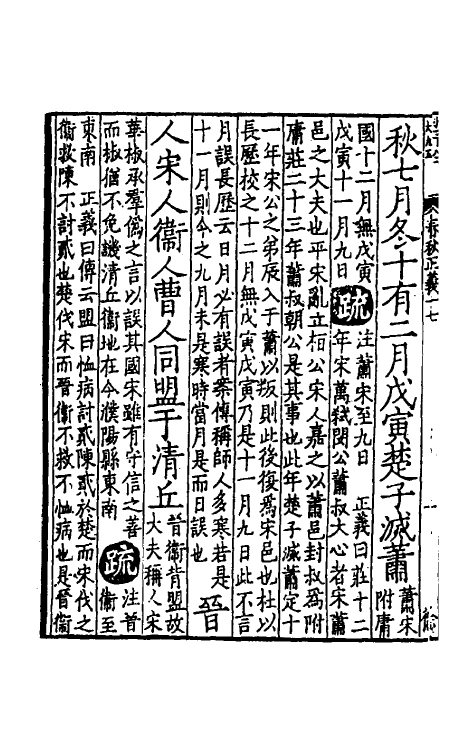 春秋正義十七
秋七月冬十有二月戊寅楚子滅蕭 蕭宋附庸
國十二月無戊寅
戊寅十一月九日
疏
注蕭宋至九日 正義曰莊十二
年宋萬弒閔公蕭叔大心者宋蕭
邑之大夫也平宋亂立桓公宋人嘉之以蕭邑封叔為附
庸莊二十三年蕭叔朝公是其事也此年楚子滅蕭定十
一年宋公之弟辰入于蕭以叛則此後復為宋邑也杜以
長歷校之十二月無戊寅戊寅乃是十一月九日此不言
月誤長歷云日月必有誤者案傳稱師人多寒若是
十一月則今之九月未是寒時當月是而日誤也
晉
人宋人衛人曹人同盟于清丘 晉衛背盟故大夫稱人宋
華椒承羣偽之言以誤其國宋雖有守信之善
而椒猶不免譏清丘衛地在今濮陽縣東南
疏
注晉
衛至
東南 正義曰傳云盟曰恤病討貳陳貳於楚而宋伐之
衛救陳不討貳也楚伐宋而晉衛不救不恤病也是晉衛